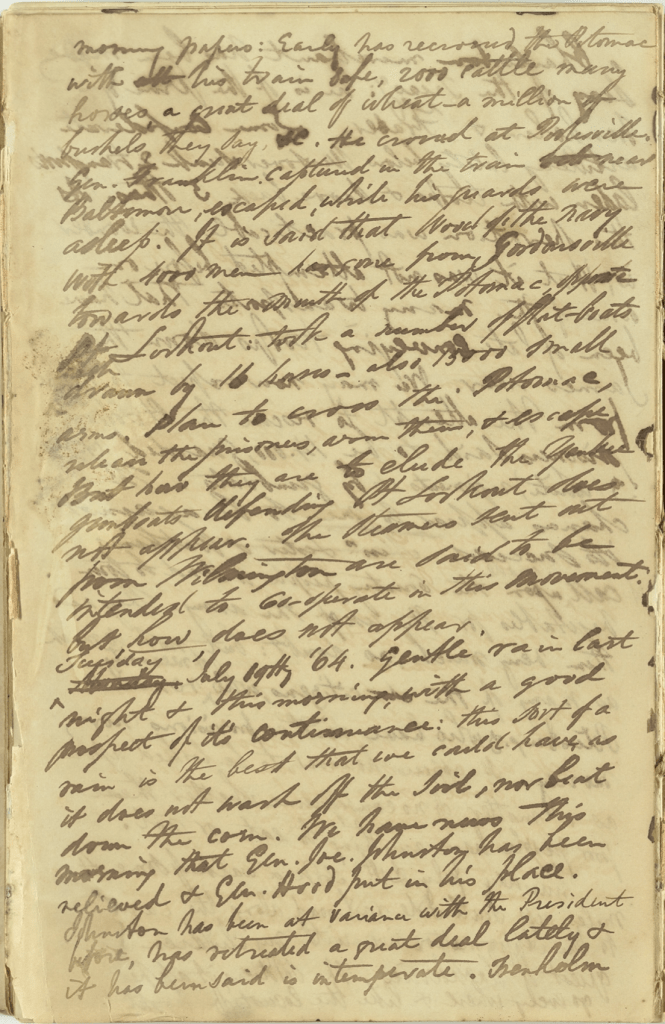 morning papers: Early has recrossed the Potomac
with all his train safe, 2000 cattle many
horses, a great deal of wheat - a million of
bushels, they say, &c. He crossed at Poolesville.
Gen. Franklin, captured in the train near
Baltimore, escaped, while his guards were
asleep. It is said that Wood of the Navy
with 4000 men has gone from Gordonsville
towards the mouth of the Potomac, opposite
Pt. Lookout: took a number of flat-boats
drawn by 16 horses - also 15000 small
arms. Plan to cross the Potomac,
release the prisoners, arm them, & escape
But how they are to elude the Yankee
gunboats defending Pt Lookout does
not appear. The steamers sent out
from Wilmington are said to be
intended to co-operate in this movement.
but how does not appear.
Tuesday July 19th, '64. Gentle rain last
night & this morning, with a good
prospect of its continuance: this sort of a
rain is the best that we could have, as
it does not wash off the soil, nor beat
down the corn. We have news this
morning that Gen. Joe. Johnston has been
relieved & Gen. Hood put in his place.
Johnston has been at variance with the President
before, has retreated a great deal lately &
it has been said is intemperate. Trenholm